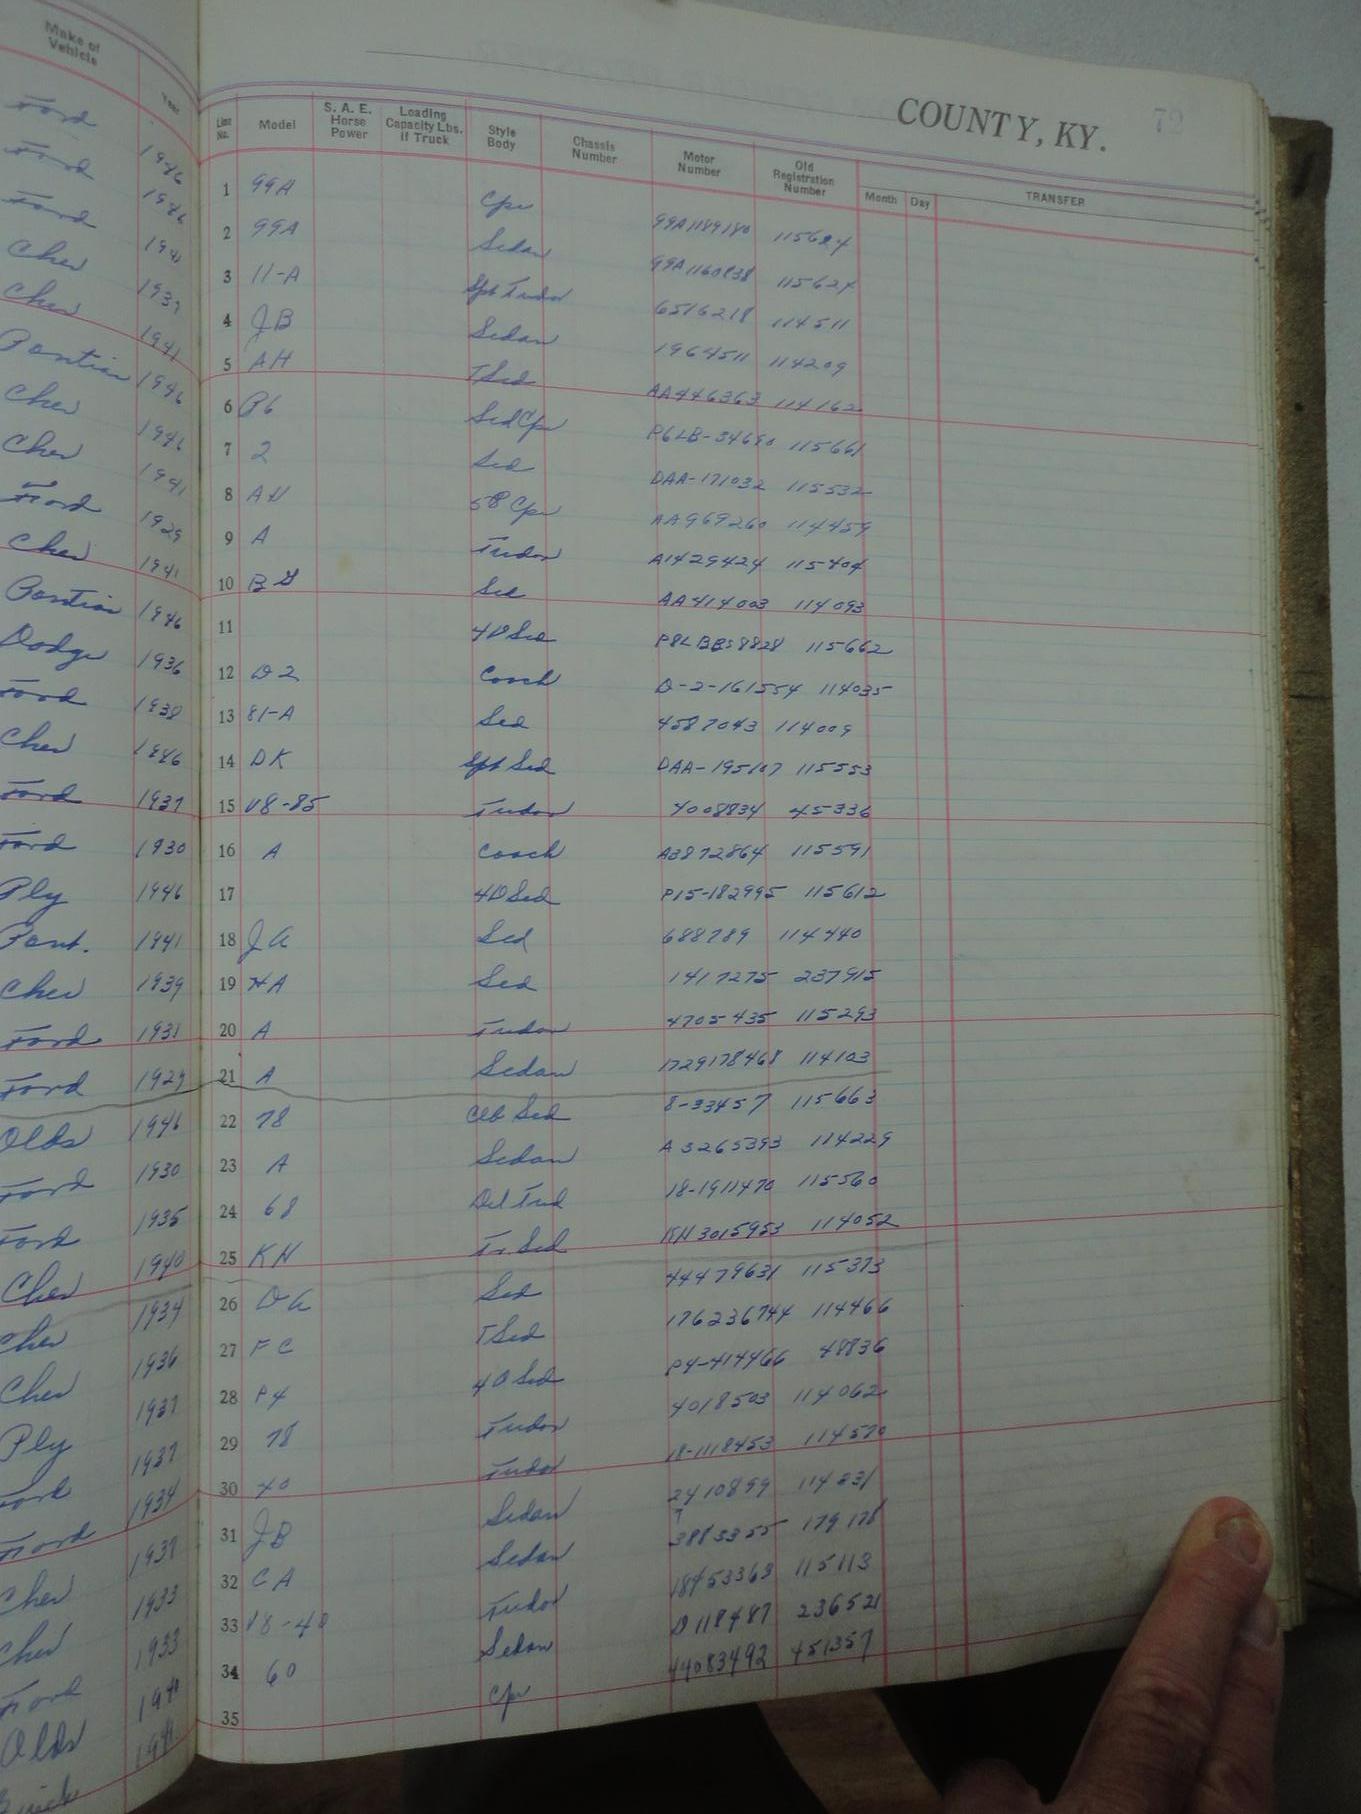 COUNTY, KY. 72
Make of Vehicle | Year | Line No. | Model | S. A. E. Horse Power | Loading Capacity Lbs. if Truck | Style Body | Chassis Number | Motor Number | Old Registration Number | Month | Day | TRANSFER
Ford 1946 1 99A Cpe 99A1189180 115624
Ford 1946 2 99A Sedan 99A1160838 115624
Ford 1941 3 11-A Spt Tudor 6516218 114511
Chev 1937 4 JB Sedan 1964511 114209
Chev 1941 5 AH TSed AA446363 114162
Pontiac 1946 6 P6 Sed Cpe P6LB-34690 115661
Chev 1946 7 2 Sed DAA-171032 115532
Chev 1941 8 AH 5P Cpe AA969260 114459
Ford 1929 9 A Tudor A1429424 115404
Chev 1941 10 Sed AA414003 114093
Pontiac 1946 11 4D Sed 115662
Dodge 1936 12 D2 Coach D-2-161554 114035
Ford 1938 13 81-A Sed 4587043 114009
Chev 1946 14 DK Spt Sed DAA-195107 115553
Ford 1937 15 V8-85 Tudor 4008834 45336
Ford 1930 16 A Coach A3872864 115591
Ply 1946 17 4D Sed P15-182995 115612
Pont. 1941 18 JA Sed 688789 114440
Chev 1939 19 HA Sed 1417275 237915
Ford 1931 20 A Tudor 4705435 115293
Ford 1929 21 A Sedan 1729178468 114103
Olds 1946 22 78 Clb Sed 8-33457 115663
Ford 1930 23 A Sedan A3265393 114229
Ford 1935 24 68 Del Tud 18-1911470 115560
Chev 1940 25 KH Tr Sed KH3015953 114052
Chev 1934 26 DA Sed 44479631 115373
Chev 1936 27 FC TSed 176236744 114466
Ply 1937 28 P4 4D Sed P4-414466 48836
Ford 1937 29 78 Tudor 4018503 114062
Ford 1934 30 40 Tudor 18-1118453 114570
Chev 1937 31 JB Sedan 2410899 114231
Chev 1933 32 CA Sedan 3885355 179178
Ford 1933 33 V8-40 Tudor 18453363 115113
Olds 1941 34 60 Sedan D118487 236521
Buick 1941 35 Cpe 44083492 451357